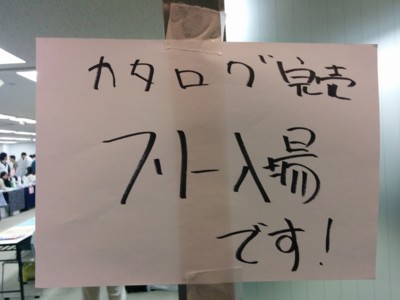 カタログ完売
フリー入場
です!